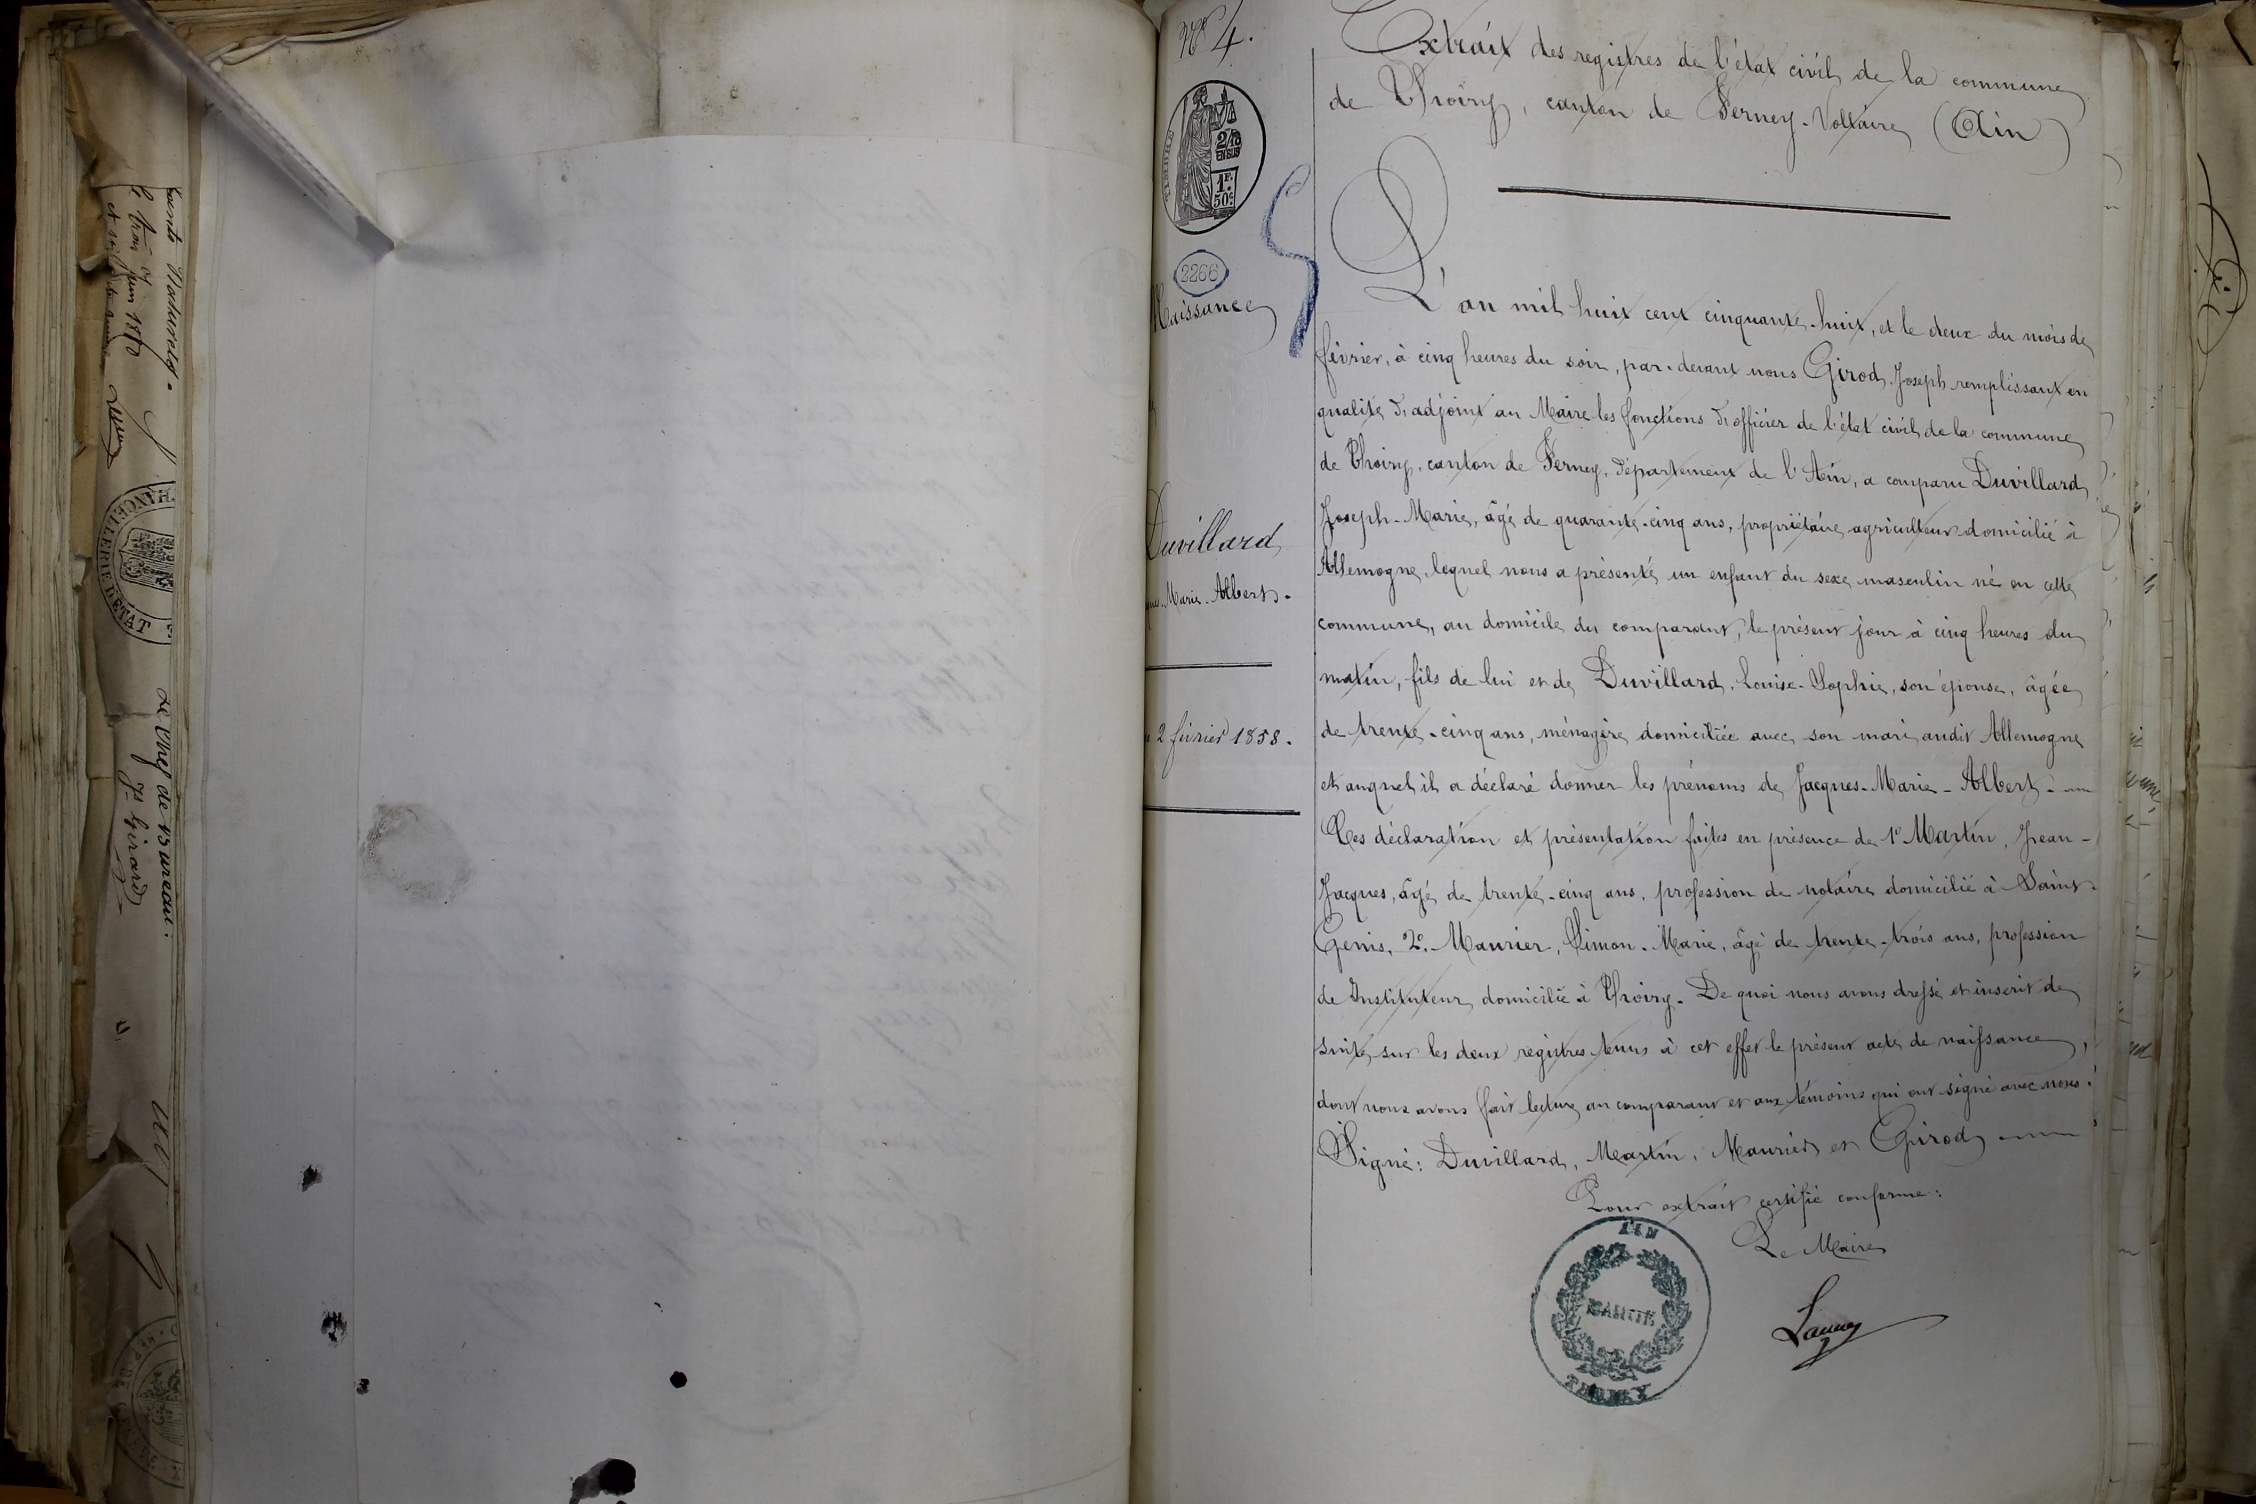 N° 4.
Extrait des registres de l'état civil de la commune
de Thoiry, canton de Ferney-Voltaire (Ain)
TIMBRE
2/10
EN SUS
1F.
50c
2266
Naissance
Duvillard
Marie-Albert.
2 février 1858.
L'an mil huit cent cinquante-huit, et le deux du mois de
février, à cinq heures du soir, par-devant nous Girod, Joseph remplissant en
qualité d'adjoint au Maire les fonctions d'officier de l'état civil de la commune
de Thoiry, canton de Ferney, département de l'Ain, a comparu Duvillard
Joseph-Marie, âgé de quarante-cinq ans, propriétaire agriculteur domicilié à
Allemogne, lequel nous a présenté un enfant du sexe masculin né en cette
commune, au domicile du comparant, le présent jour à cinq heures du
matin, fils de lui et de Duvillard, Louise-Sophie, son épouse, âgée
de trente-cinq ans, ménagère domiciliée avec son mari audit Allemogne
et auquel il a déclaré donner les prénoms de Jacques-Marie-Albert.
Ces déclaration et présentation faites en présence de 1° Martin, Jean-
Jacques, âgé de trente-cinq ans, profession de notaire domicilié à Saint-
Genis, 2° Maurier, Simon-Marie, âgé de trente-trois ans, profession
de Instituteur domicilié à Thoiry. De quoi nous avons dressé et inscrit de
suite, sur les deux registres tenus à cet effet le présent acte de naissance,
dont nous avons fait lecture au comparant et aux témoins qui ont signé avec nous.
Signé: Duvillard, Martin, Maurier et Girod
Pour extrait certifié conforme:
Le Maire
AIN
MAIRIE
le trois Juin 18
CHANCELLERIE D'ÉTAT
Le Chef de Bureau: